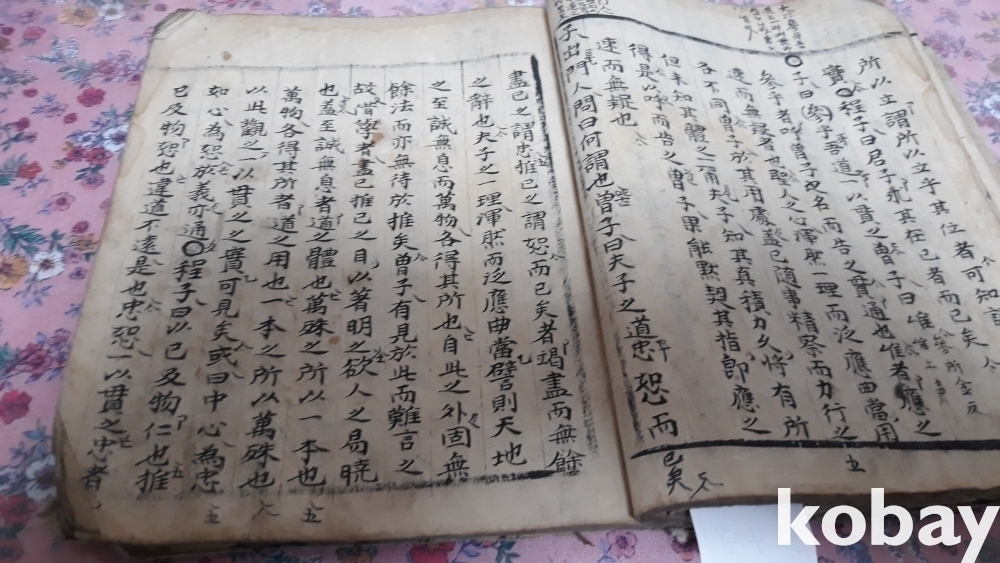 所以立謂所以立乎其位者可知言
實○程子曰君子求其在己者而已矣 參所金反
子曰參乎吾道一以貫之曾子曰唯 唯上聲
參乎者呼曾子之名而告之貫通也唯者應之
速而無疑者也聖人之心渾然一理而泛應曲當用
各不同曾子於其用處蓋已隨事精察而力行之
但未知其體之一爾夫子知其真積力久將有所
得是以呼而告之曾子果能默契其指即應之
速而無疑也
子出門人問曰何謂也曾子曰夫子之道忠恕而已矣
盡己之謂忠推己之謂恕而已矣者竭盡而無餘
之辭也夫子之一理渾然而泛應曲當譬則天地
之至誠無息而萬物各得其所也自此之外固無
餘法而亦無待於推矣曾子有見於此而難言之
故借學者盡己推己之目以著明之欲人之易曉
也蓋至誠無息者道之體也萬殊之所以一本也
萬物各得其所者道之用也一本之所以萬殊也
以此觀之一以貫之之實可見矣或曰中心為忠
如心為恕於義亦通○程子曰以己及物仁也推
己及物恕也違道不遠是也忠恕一以貫之忠者
kobay